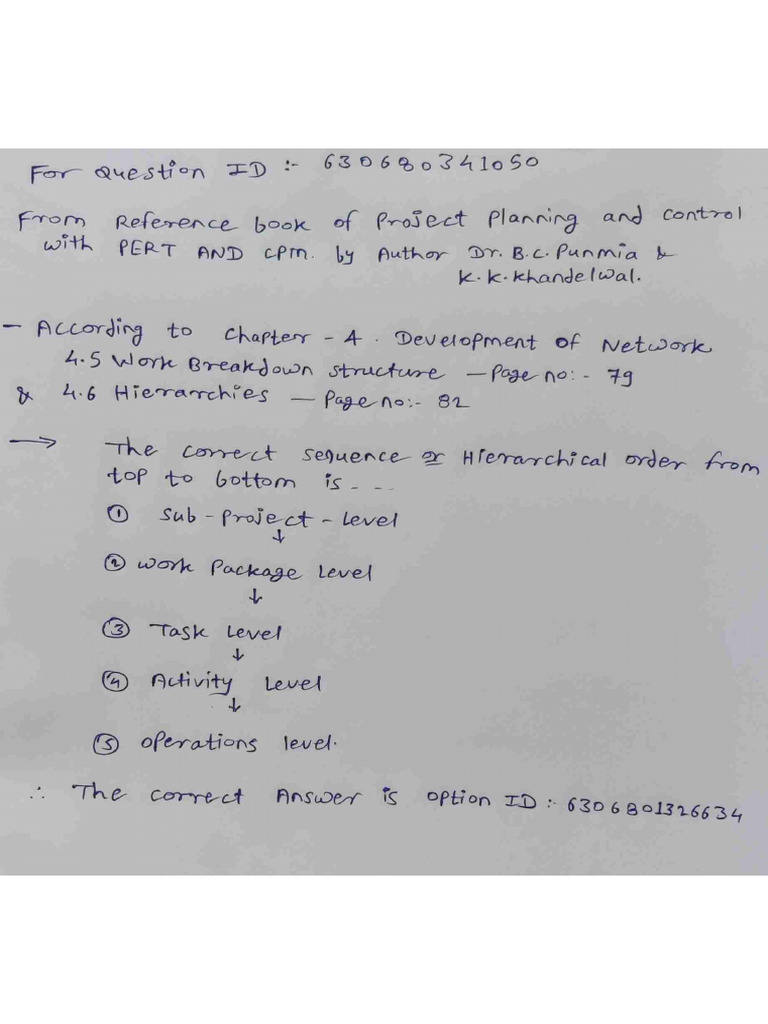 For Question ID :- 630680341050
From Reference book of Project Planning and control
with PERT AND CPM. by Author Dr. B.C. Punmia &
K.K. Khandelwal.
- According to Chapter - 4. Development of Network
4.5 Work Breakdown structure - Page no:- 79
& 4.6 Hierarchies - Page no:- 82
→ The correct sequence or Hierarchical order from
top to bottom is - - -
① Sub-project-Level
↓
② Work Package Level
↓
③ Task Level
↓
④ Activity Level
↓
⑤ Operations level.
∴ The correct Answer is option ID :- 6306801326634